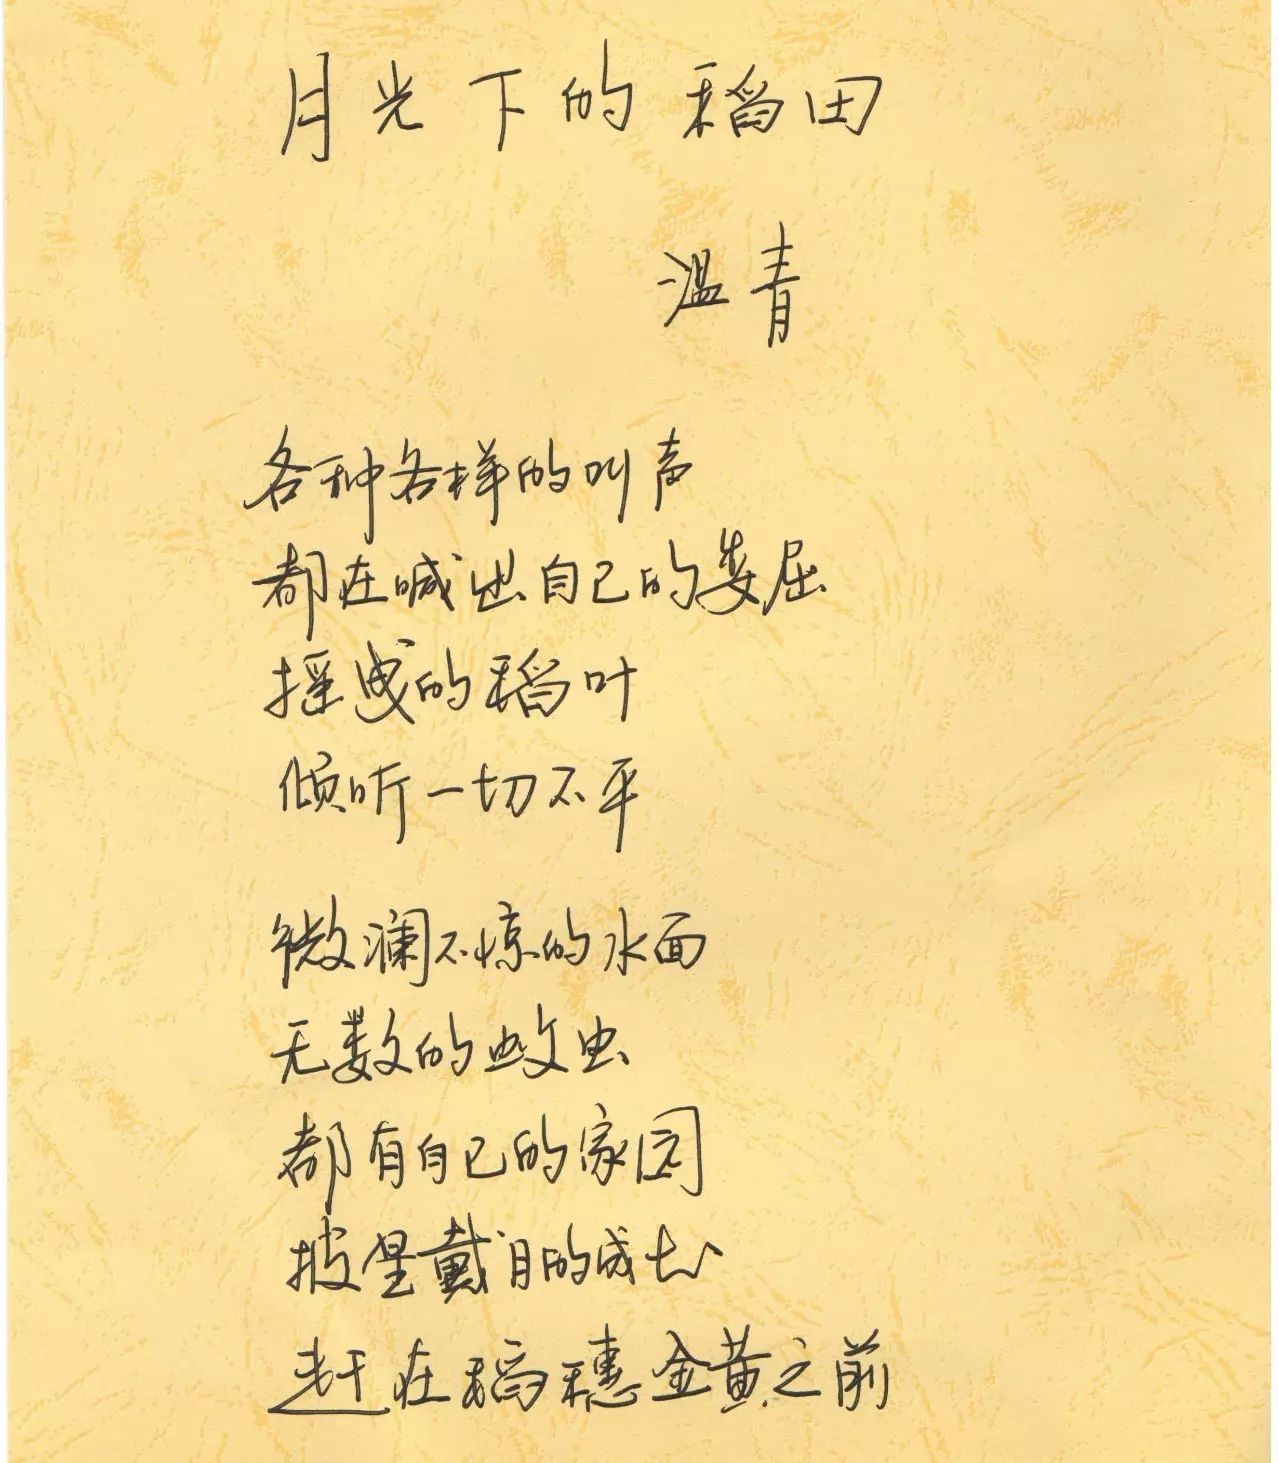 月光下的稻田
温青
各种各样的叫声
都在喊出自己的委屈
摇曳的稻叶
倾听一切不平
微澜不惊的水面
无数的蚊虫
都有自己的家园
披星戴月的成长
赶在稻穗金黄之前